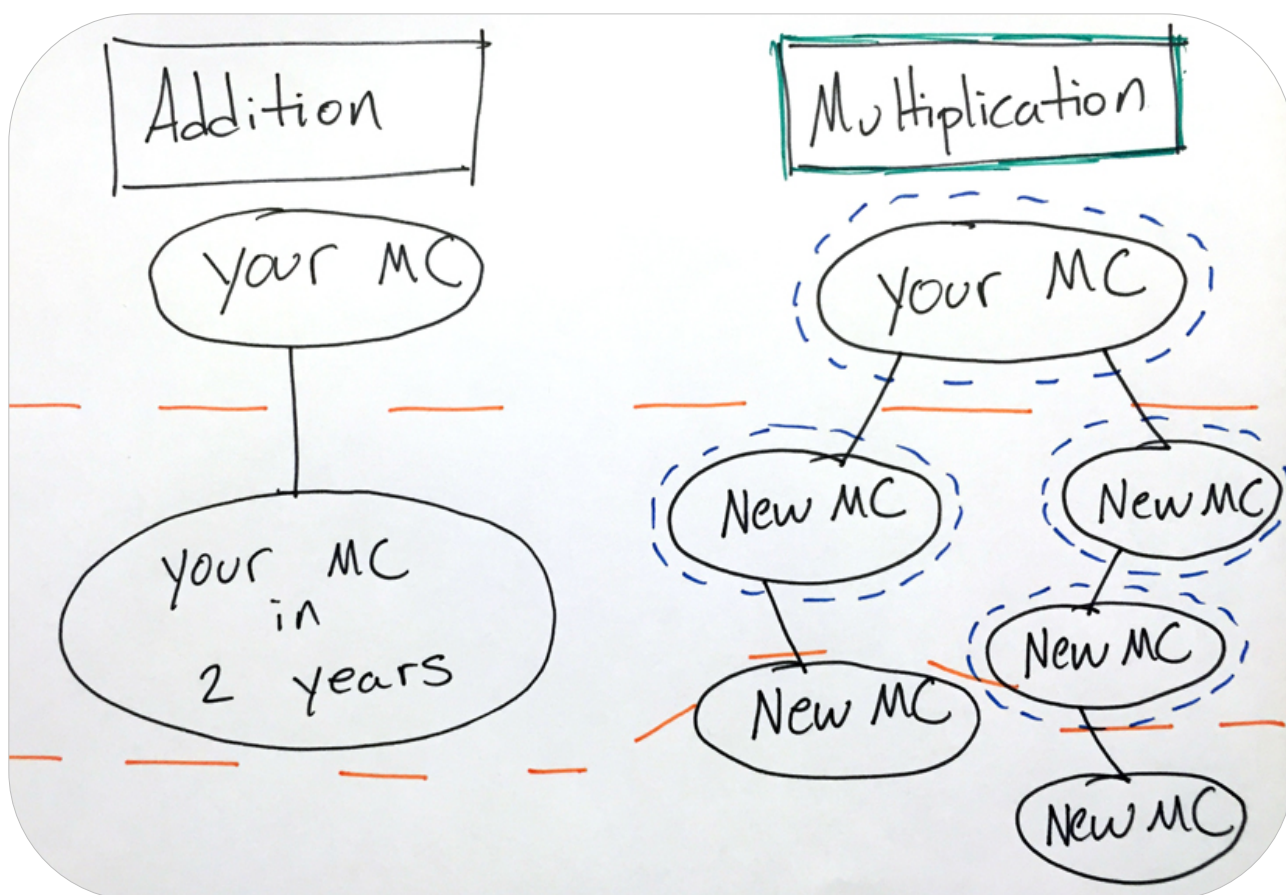 Addition
your MC
your MC
in
2 years
Multiplication
your MC
New MC
New MC
New MC
New MC
New MC